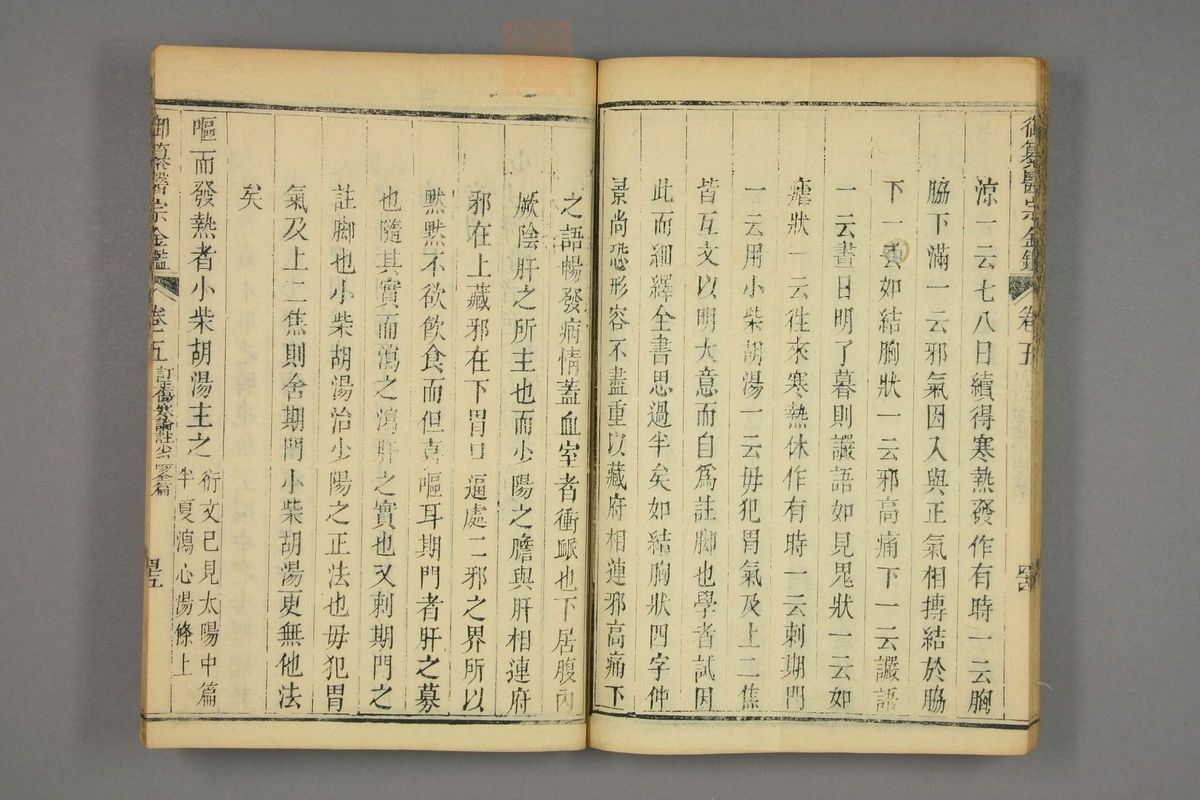 御纂醫宗金鑑 卷五
涼一云七八日續得寒熱發作有時一云胸
脇下滿一云邪氣因入與正氣相摶結於脇
下一云如結胸狀一云邪高痛下一云讝語
一云晝日明了暮則讝語如見鬼狀一云如
瘧狀一云往來寒熱休作有時一云刺期門
一云用小柴胡湯一云毋犯胃氣及上二焦
皆互文以明大意而自爲註脚也學者試因
此而細繹全書思過半矣如結胸狀四字仲
景尚恐形容不盡重以藏府相連邪高痛下
之語暢發病情蓋血室者衝脈也下居腹內
厥陰肝之所主也而少陽之膽與肝相連府
邪在上藏邪在下胃口逼處二邪之界所以
默默不欲飲食而但喜嘔耳期門者肝之募
也隨其實而瀉之瀉肝之實也又刺期門之
註脚也小柴胡湯治少陽之正法也毋犯胃
氣及上二焦則舍期門小柴胡湯更無他法
矣
嘔而發熱者小柴胡湯主之
衍文已見太陽中篇
半夏瀉心湯條上
御纂醫宗金鑑 卷五 訂正傷寒論註少陽全篇 四五